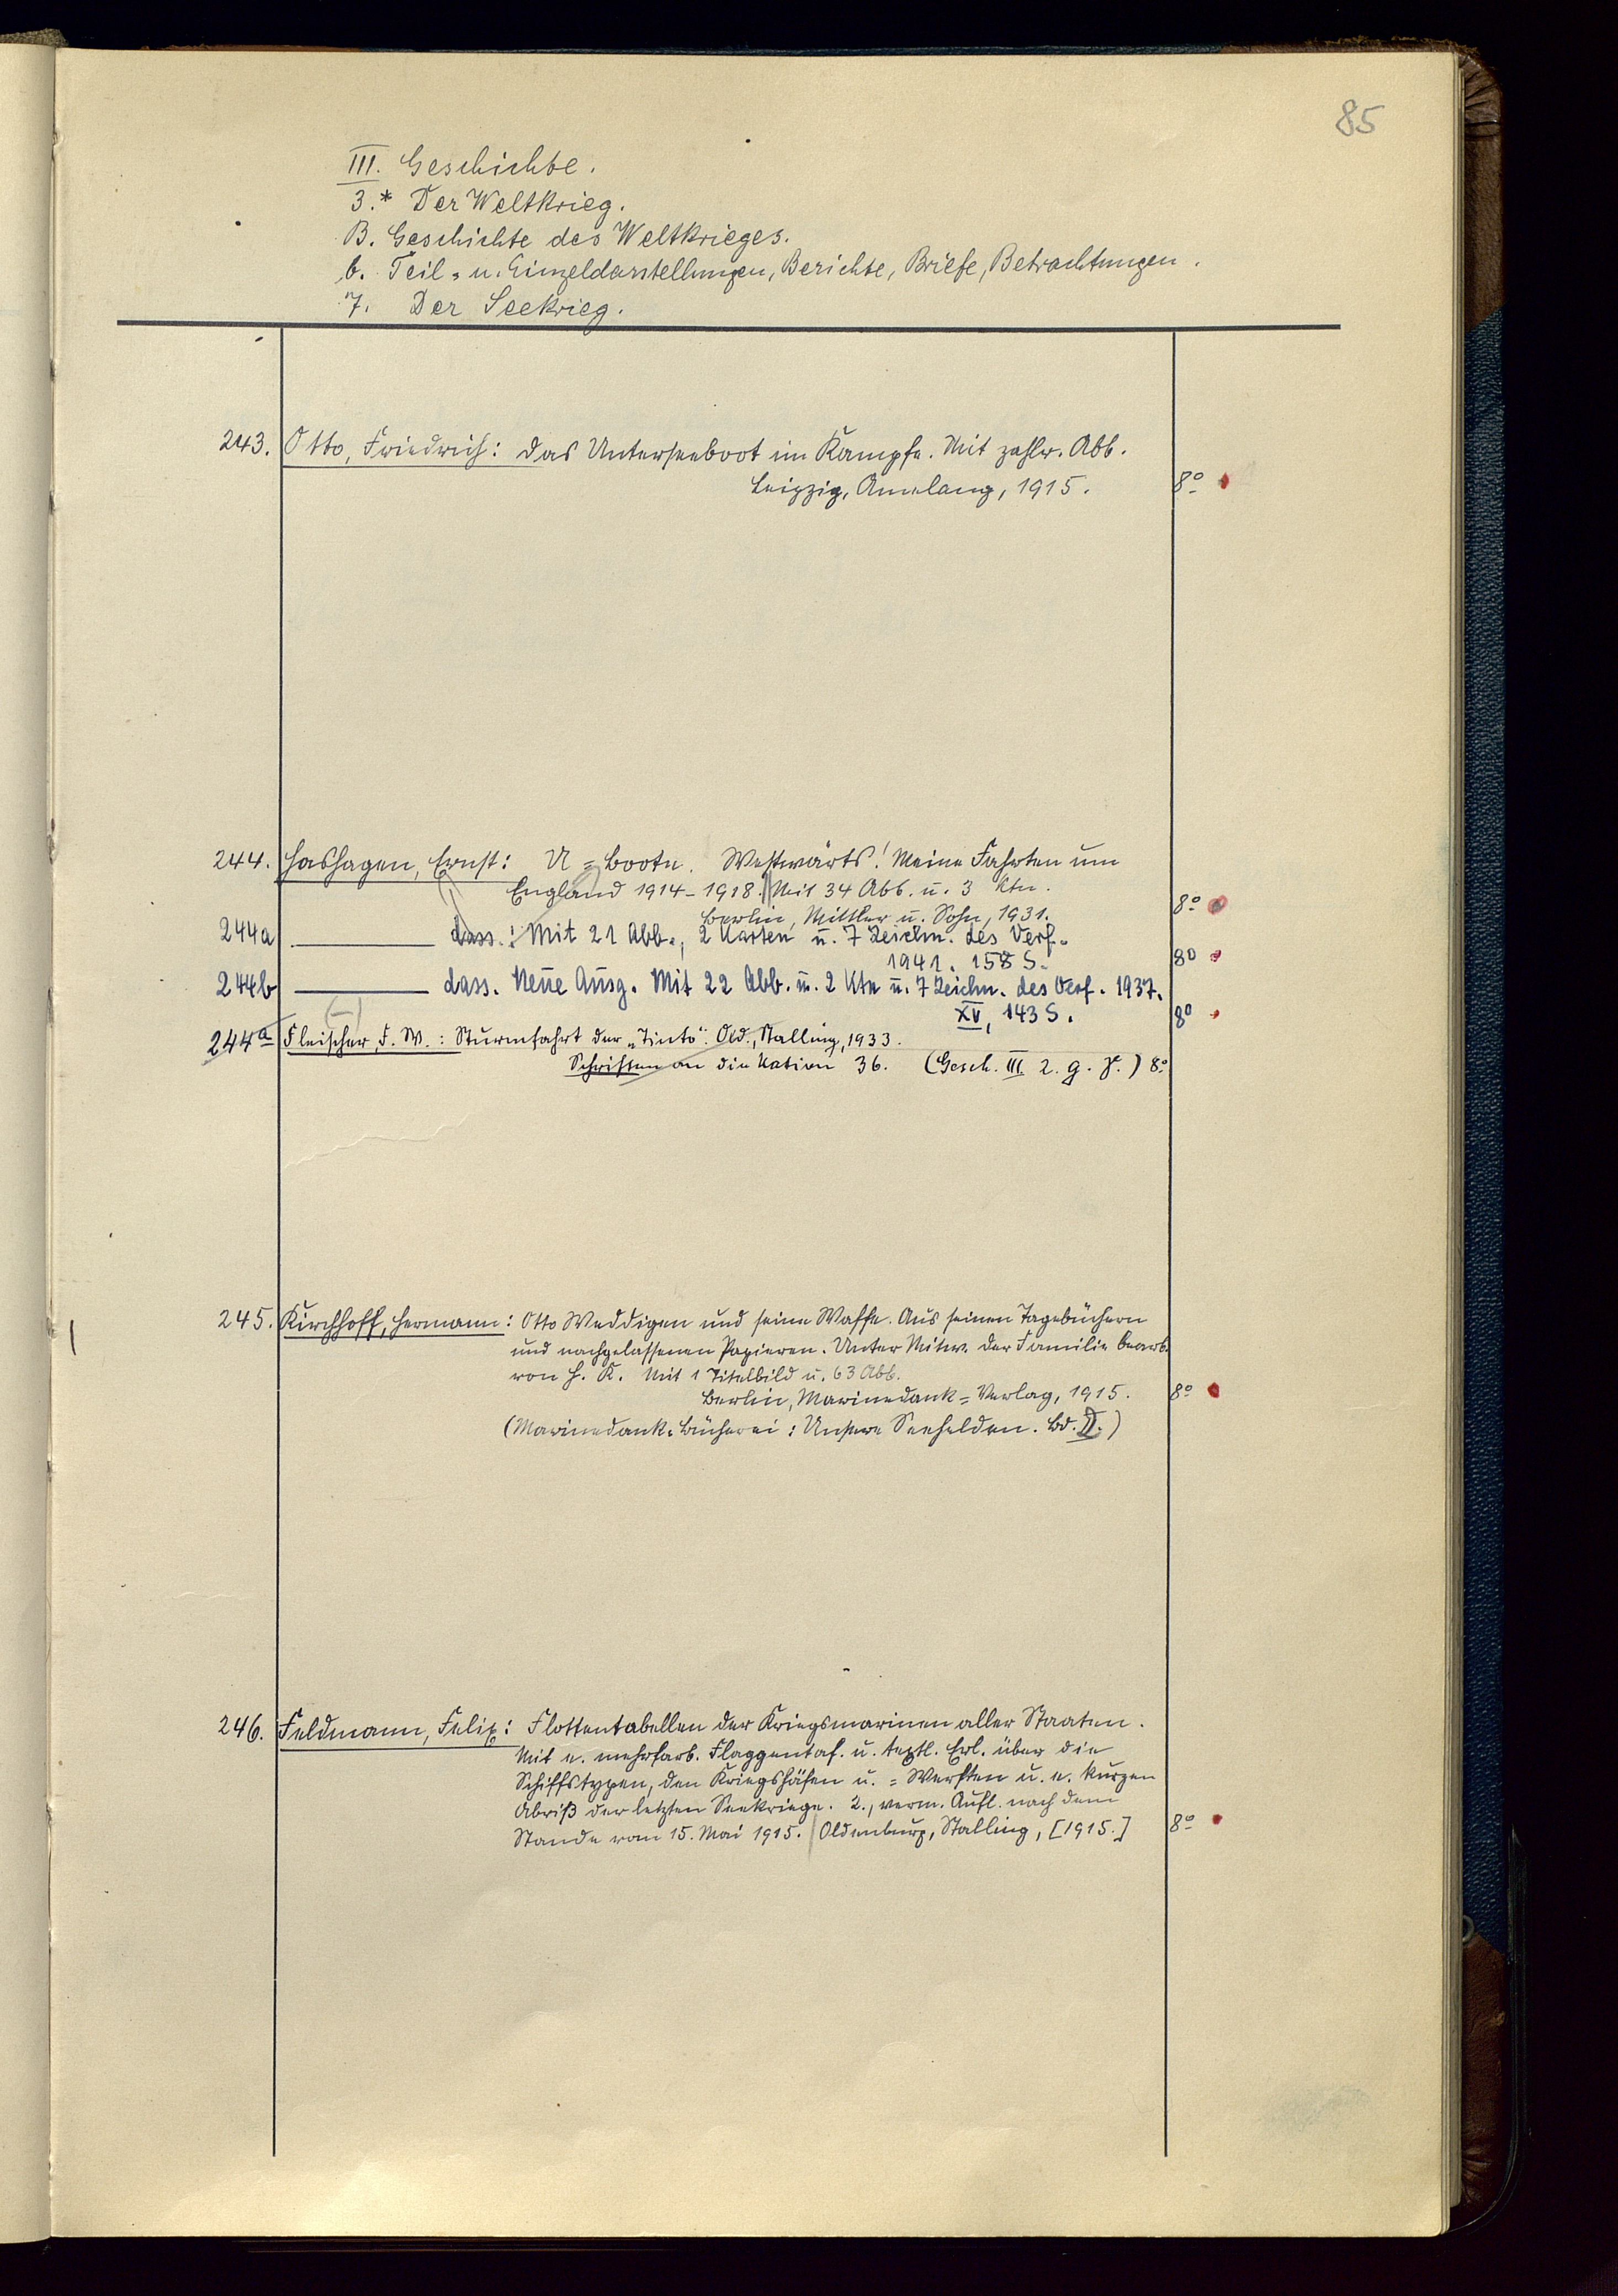 85
III. Geschichte.
3.* Der Weltkrieg.
B. Geschichte des Weltkrieges.
b. Teil- u. Einzeldarstellungen, Berichte, Briefe, Betrachtungen.
7. Der Seekrieg.
243. Otto, Friedrich: Das Unterseeboot im Kampfe. Mit zahlr. Abb.
Leipzig, Amelang, 1915. 8°
244. Hashagen, Ernst: U=Boote. Westwärts! Meine Fahrten um
England 1914-1918. Mit 34 Abb. u. 3 Ktn.
Berlin, Mittler u. Sohn, 1931. 8°
244a ——— dass.: Mit 21 Abb., 2 Karten u. 7 Zeichn. des Verf.
1941. 158 S. 8°
244b ——— dass. Neue Ausg. Mit 22 Abb. u. 2 Ktn u. 7 Zeichn. des Verf. 1937.
XV, 143 S. 8°
(—)
244a Fleischer, F. W.: Sturmfahrt der „Tinto". Old., Stalling, 1933.
Schriften an die Nation 36. (Gesch. III 2. g. γ.) 8°
245. Kirchhoff, Hermann: Otto Weddigen und seine Waffe. Aus seinen Tagebüchern
und nachgelassenen Papieren. Unter Mitw. der Familie bearb.
von H. K. Mit 1 Titelbild u. 63 Abb.
Berlin, Marinedank=Verlag, 1915. 8°
(Marinedank=Bücherei: Unsere Seehelden. Bd. II.)
246. Feldmann, Felix: Flottentabellen der Kriegsmarinen aller Staaten.
Mit e. mehrfarb. Flaggentaf. u. textl. Erl. über die
Schiffstypen, den Kriegshäfen u. =Werften u. e. kurzen
Abriß der letzten Seekriege. 2., verm. Aufl. nach dem
Stande vom 15. Mai 1915. Oldenburg, Stalling, [1915.] 8°